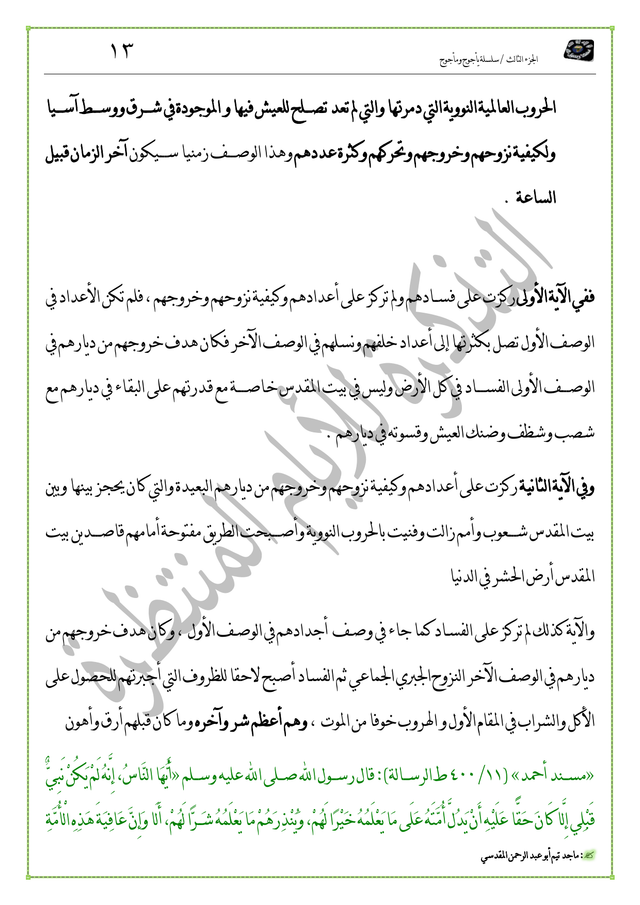 ١٣
الجزء الثالث / سلسلة يأجوج ومأجوج
الحروب العالمية النووية التي دمرتها والتي لم تعد تصلح للعيش فيها و الموجودة في شرق ووسط آسيا
ولكيفية نزوحهم وخروجهم وتحركهم وكثرة عددهم وهذا الوصف زمنيا سيكون آخر الزمان قبيل
الساعة .
ففي الآية الأولى ركزت على فسادهم ولم تركز على أعدادهم وكيفية نزوحهم وخروجهم ، فلم تكن الأعداد في
الوصف الأول تصل بكثرتها إلى أعداد خلفهم ونسلهم في الوصف الآخر فكان هدف خروجهم من ديارهم في
الوصف الأولى الفساد في كل الأرض وليس في بيت المقدس خاصة مع قدرتهم على البقاء في ديارهم مع
شصب وشظف وضنك العيش وقسوته في ديارهم .
وفي الآية الثانية ركزت على أعدادهم وكيفية نزوحهم وخروجهم من ديارهم البعيدة والتي كان يحجز بينها وبين
بيت المقدس شعوب وأمم زالت وفنيت بالحروب النووية وأصبحت الطريق مفتوحة أمامهم قاصدين بيت
المقدس أرض الحشر في الدنيا
والآية كذلك لم تركز على الفساد كما جاء في وصف أجدادهم في الوصف الأول ، وكان هدف خروجهم من
ديارهم في الوصف الآخر النزوح الجبري الجماعي ثم الفساد أصبح لاحقا للظروف التي أجبرتهم للحصول على
الأكل والشراب في المقام الأول و الهروب خوفا من الموت ، وهم أعظم شر وآخره وما كان قبلهم أرق وأهون
«مسند أحمد» (١١/ ٤٠٠ ط الرسالة): قال رسول الله صلى الله عليه وسلم «أَيُّهَا النَّاسُ، إِنَّهُ لَمْ يَكُنْ نَبِيٌّ
قَبْلِي إِلَّا كَانَ حَقًّا عَلَيْهِ أَنْ يَدُلَّ أُمَّتَهُ عَلَى مَا يَعْلَمُهُ خَيْرًا لَهُمْ، وَيُنْذِرَهُمْ مَا يَعْلَمُهُ شَرًّا لَهُمْ، أَلَا وَإِنَّ عَافِيَةَ هَذِهِ الْأُمَّةِ
: ماجد تيم أبو عبد الرحمن المقدسي
التذكرة للأيام المنتظرة